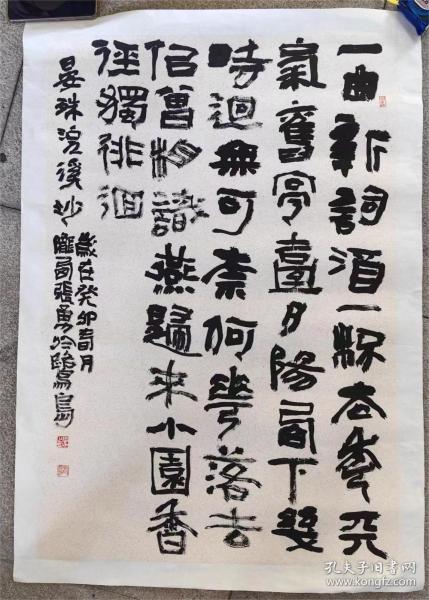 一曲新詞酒一桮去年天
氣舊亭臺夕陽西下幾
時迴無可柰何華落去
佀曾相識燕歸來小園香
徑獨徘徊
晏殊浣溪沙
歲在癸卯春月
隴西張勇於鷺島
孔夫子旧书网
www.kongfz.com